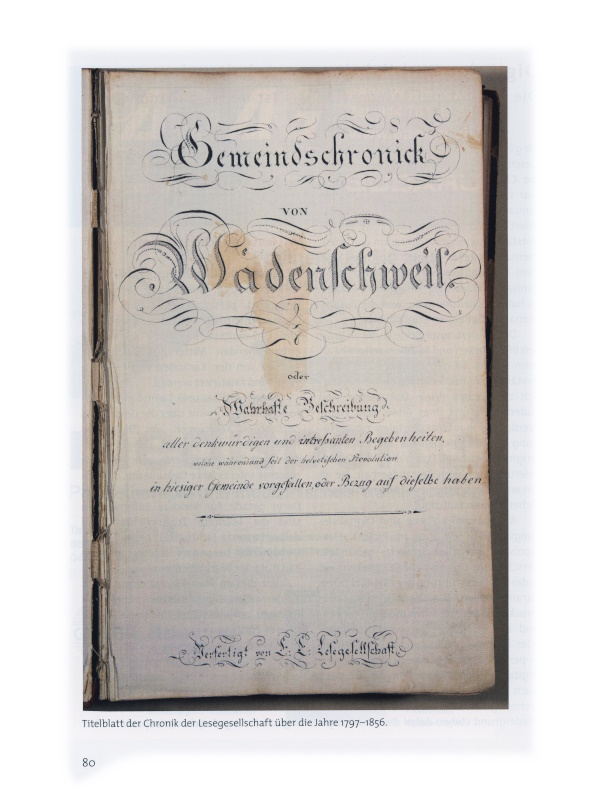 Gemeindschronick
VON
Wädenschweil.
oder
Wahrhafte Beschreibung
aller denkwürdigen und intressanten Begebenheiten,
welche während und seit der helvetischen Revolution
in hiesiger Gemeinde vorgefallen, oder Bezug auf dieselbe haben
Verfertigt von E: E: Lesegesellschaft.
Titelblatt der Chronik der Lesegesellschaft über die Jahre 1797–1856.
80